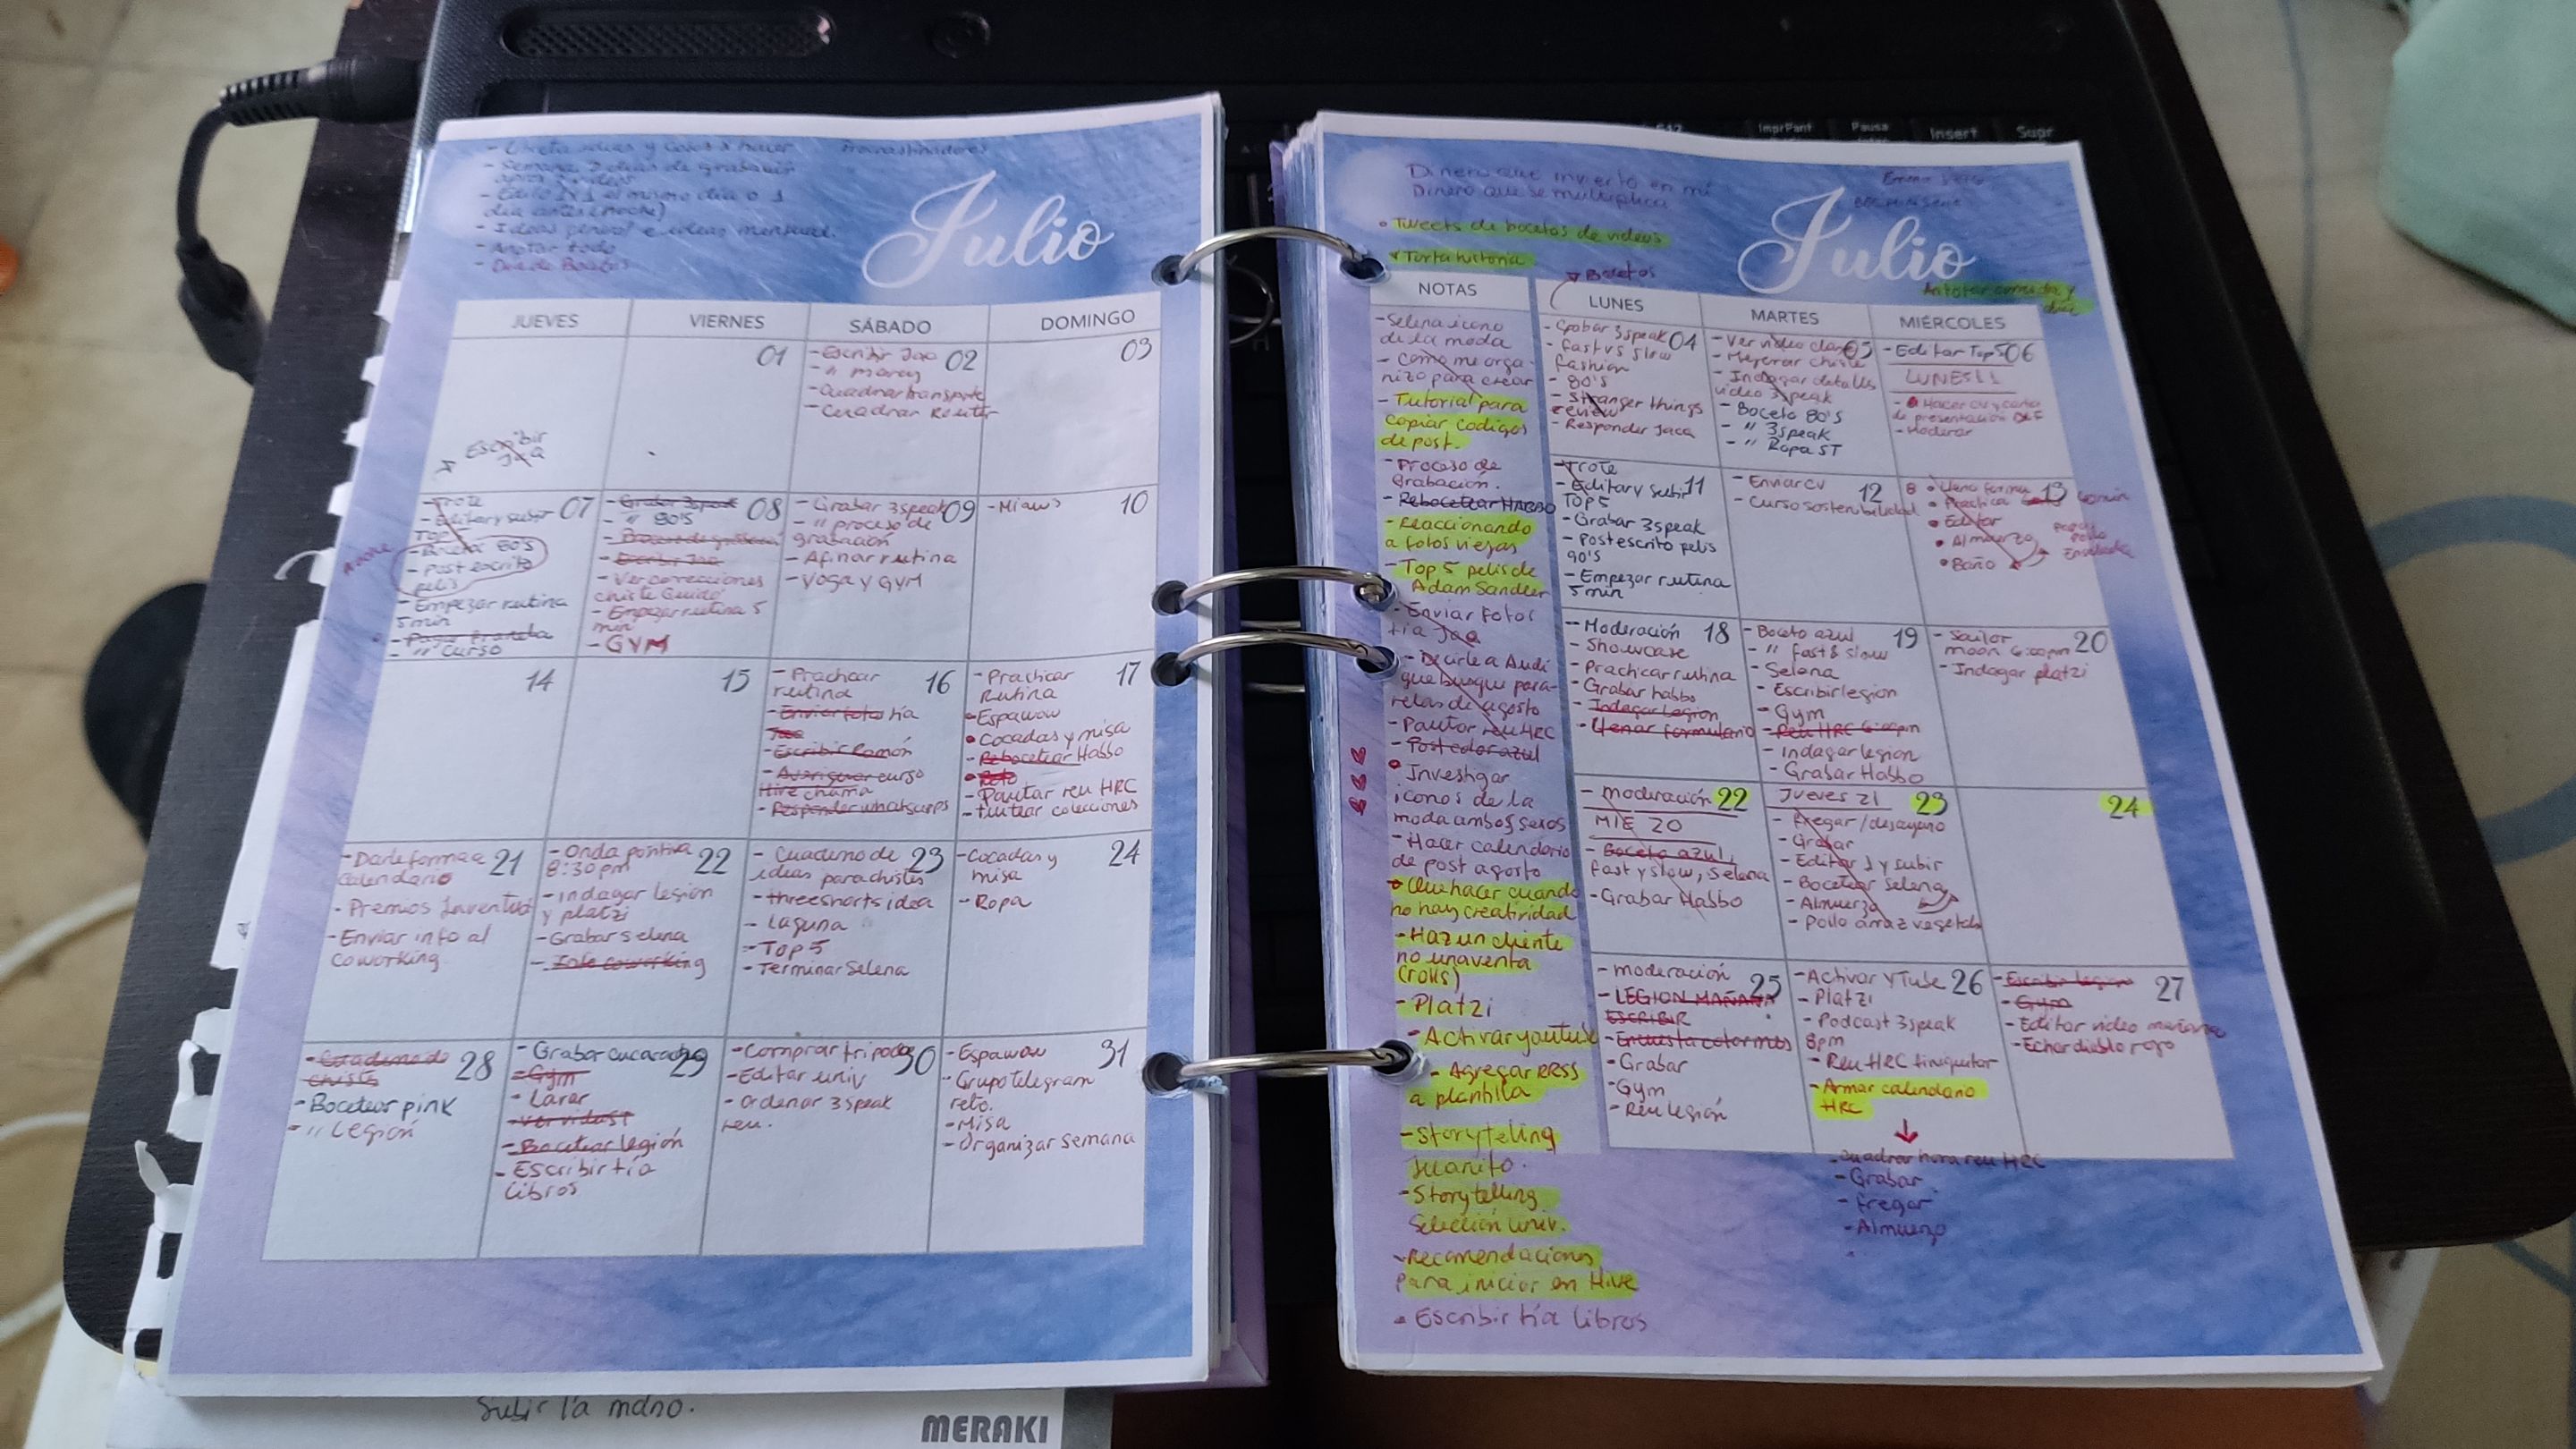 - Libreta ideas y cosas a hacer
Procrastinadores
- Semana 2 dias de grabación
- Edito 1x1 el mismo dia o 1
dia antes (noche)
- Ideas general e ideas mensual.
- Anotar todo
- Dia de Bocetos
Julio
JUEVES
VIERNES
SÁBADO
DOMINGO
Escribir
Jaa
01
02
- Escribir Jaa
- " marcy
- Cuadrar transporte
- Cuadrar Reuter
03
07
- Trote
- Editar y subir
Top
- Boceto 80's
- Post escrito
pelis
- Empezar rutina
5 min
- Pagar Franela
- " curso
08
- Grabar 3speak
- " 80's
- Proceso de grabación
- Escribir Jaa
- Ver correcciones
chiste Guido
- Empezar rutina 5
min
- GYM
09
- Grabar 3speak
- " proceso de
grabación
- Afinar rutina
- Yoga y GYM
10
- Miaws
14
15
16
- Practicar
rutina
- Enviar fotos tía
Jaa
- Escribir Ramón
- Averiguar curso
Hive chama
- Responder whatsapps
17
- Practicar
Rutina
- Espawow
• Cocadas y misa
- Rebocetear Habbo
• Reto
- Pautar reu HRC
- Tuitear colecciones
21
- Darle forma a
calendario
- Premios Juventud
- Enviar info al
coworking
22
- Onda positiva
8:30pm
- Indagar legion
y platzi
- Grabar selena
- Info coworking
23
- Cuaderno de
ideas para chistes
- threeshorts idea
- Laguna
- Top 5
- Terminar Selena
24
- Cocadas y
misa
- Ropa
28
- Cuaderno de
chistes
- Bocetear pink
- " Legión
29
- Grabar cucaracha
- Gym
- Lavar
- Ver video ST
- Bocetear legión
- Escribir tía
libros
30
- Comprar tripode
- Editar univ
- Ordenar 3speak
reu.
31
- Espawow
- Grupo telegram
reto.
- Misa
- Organizar semana
Subir la mano.
MERAKI
ImprPant
Pausa
Insert
Supr
Dinero que invierto en mi
Dinero que se multiplica
• Tweets de bocetos de videos
Torta historia
Bocetos
Julio
Anotar comida y
NOTAS
LUNES
MARTES
MIÉRCOLES
- Selena icono
de la moda
- Como me orga-
nizo para crear
- Tutorial para
copiar codigos
de post.
- Proceso de
Grabación.
- Rebocetear HABBO
- Reaccionando
a fotos viejas
- Top 5 pelis de
Adam Sandler
- Enviar Fotos
tía Jaa
- Decirle a Audi
que busque para-
relas de agosto
- Pautar reu HRC
- Post color azul
• Investigar
iconos de la
moda ambos sexos
- Hacer calendario
de post agosto
• Que hacer cuando
no hay creatividad
- Haz un cliente
no una venta
(rolls)
- Platzi
- Activar youtube
- Agregar RRSS
a plantilla
- Storyteling
Juanito.
- Storytelling
Selección univ.
- Recomendaciones
para iniciar en Hive
• Escribir tía libros
04
- Grabar 3speak
- Fast vs slow
fashion
- 80's
- Stranger things
review
- Responder Jaca
05
- Mejorar chiste
- Indagar detalles
video 3speak
- Boceto 80's
- " 3speak
- " Ropa ST
06
- Editar Top 5
LUNES 11
• Hacer cv y carta
de presentación
- Moderar
11
- Trote
- Editar y subir
TOP 5
- Grabar 3speak
- Post escrito pelis
90's
- Empezar rutina
5 min
12
- Enviar cv
- Curso sostenibilidad
13
• Lleno forma
• Practica
• Editar
• Almuerzo
• Baño
Pollo
Ensalada
18
- Moderación
- Showcase
- Practicar rutina
- Grabar habbo
- Indagar Legion
- Llenar formulario
19
- Boceto azul
- " fast & slow
- Selena
- Escribir legion
- Gym
- Reu HRC 6:00pm
- Indagar legion
- Grabar Habbo
20
- Sailor
moon 6:00pm
- Indagar platzi
22
- moderación
MIE 20
- Boceto azul,
fast y slow, selena
- Grabar Habbo
23
Jueves 21
- Fregar / desayuno
- Grabar
- Editar 1 y subir
- Bocetear Selena
- Almuerzo
- Pollo arroz vegetales
24
25
- moderación
- LEGION MAÑANA
ESCRIBIR
- Encuesta color mes
- Grabar
- Gym
- Reu legión
26
- Activar YTube
- Platzi
- Podcast 3speak
8pm
- Reu HRC finiquitar
- Armar calendario
HRC
- Cuadrar hora reu HRC
- Grabar
- Fregar
- Almuerzo
27
- Escribir legion
- Gym
- Editar video mañana
- Echar diablo rojo